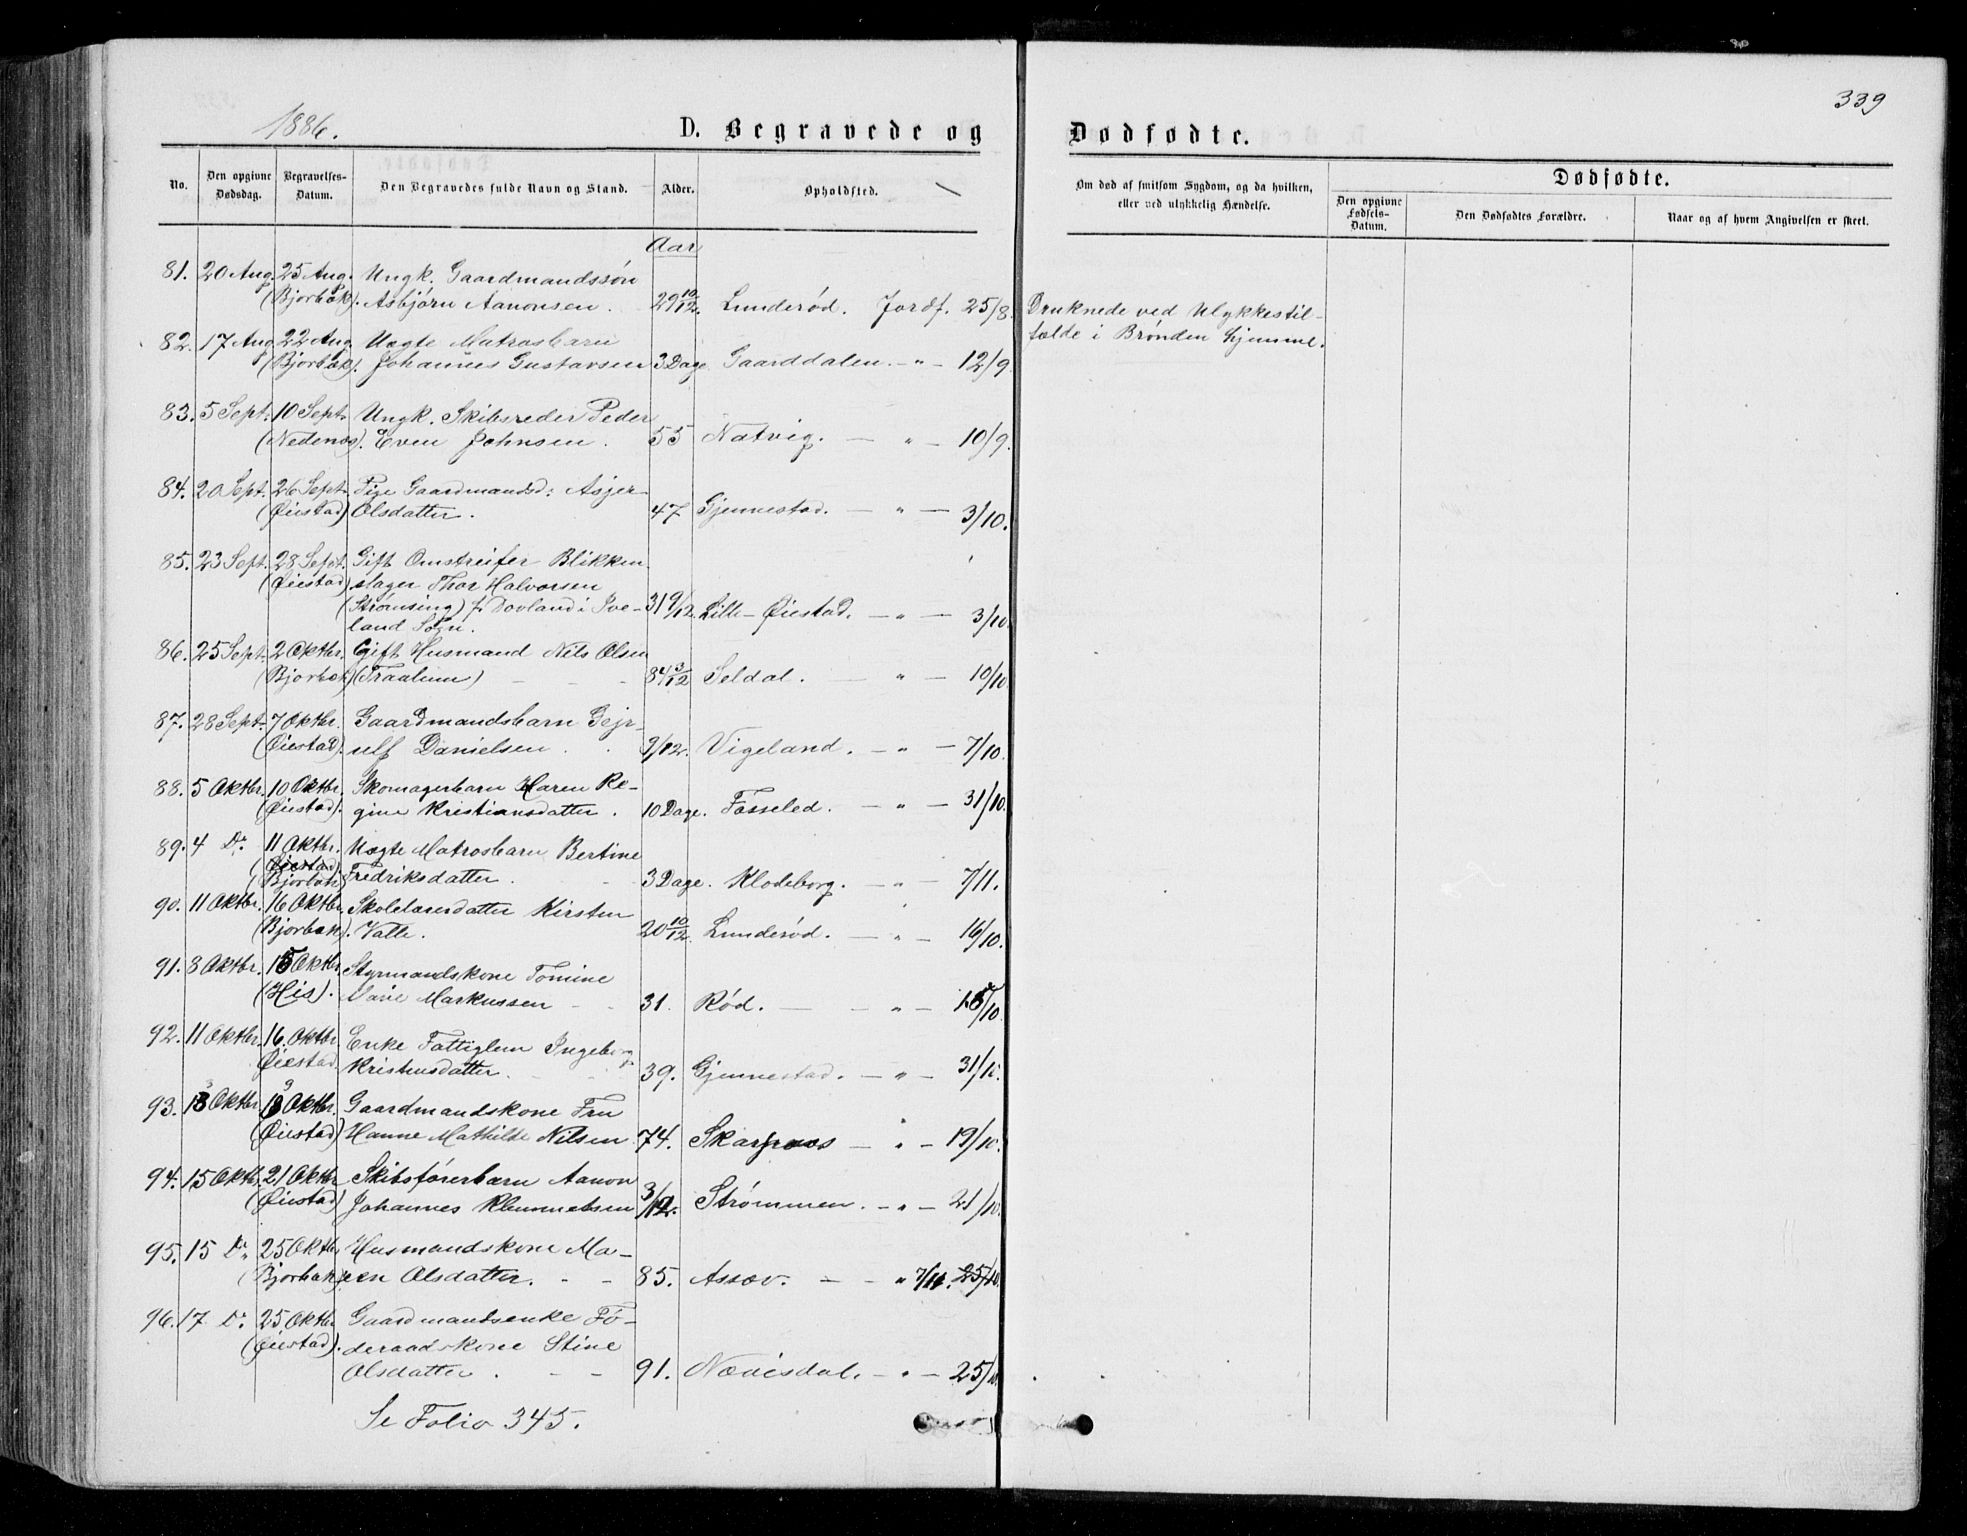 339
1886.
D. Begravede og Dødfødte.
No. Den opgivne Dødsdag. Begravelses-Datum. Den Begravedes fulde Navn og Stand. Alder. Opholdsted.
Om død af smitsom Sygdom, og da hvilken, eller ved ulykkelig Hændelse.
Dødfødte.
Den opgivne Fødsels-Datum. Den Dødfødtes Forældre. Naar og af hvem Angivelsen er skeet.
Aar
81. 20 Aug. 25 Aug. Ungk. Gaardmandssøn
(Bjorbæk). Asbjørn Aanonsen. 29 10/12. Lunderød. Jordf. 25/8. Druknede ved Ulykkestil-
fælde i Brønden hjemme.
82. 17 Aug. 22 Aug. Uægte Matrosbarn
(Bjorbæk). Johannes Gustavsen 3 Dage. Gaarddalen. - " - 12/9.
83. 5 Sept. 10 Sept. Ungk. Skibsreder Peder
(Nedenæs). Even Johnsen. 55 Natvig. - " - 10/9.
84. 20 Sept. 26 Sept. Pige Gaardmandsd: Asjer
(Øiestad) Olsdatter. 47 Gjennestad. - " - 3/10.
85. 23 Sept. 28 Sept. Gift Omstreifer Blikken
(Øiestad) slager Thor Halvorsen
(Strømsing) f. Dovland i Ive- 31 9/12. Lille-Øiestad. - " - 3/10.
land Sogn.
86. 25 Sept. 2 Oktbr. Gift Husmand Nils Olsen
(Bjorbæk) (Traalum) - - - 84 3/12 Seldal. - " - 10/10.
87. 28 Sept. 7 Oktbr. Gaardmandsbarn Gejr-
(Øiestad). ulf Danielsen. 9/12. Vigeland. - " - 7/10.
88. 5 Oktbr. 10 Oktbr. Skomagerbarn Karen Re-
(Øiestad). gine Kristiansdatter. 10 Dage. Fosseled. - " - 31/10.
89. 4 Do. 11 Oktbr. Uægte Matrosbarn Bertine
(Øiestad)
(Bjorbæk) Fredriksdatter. - - 3 Dage. Klodeborg. - " - 7/11.
90. 11 Oktbr. 16 Oktbr. Skolelærerdatter Kirsten
(Bjorbæk). Valle. 20 10/12. Lunderød. - " - 16/10.
91. 8 Oktbr. 15 Oktbr. Styrmandskone Tomine
(His). Marie Markussen - - 31. Rød. - - " - 15/10.
92. 11 Oktbr. 16. Oktbr. Enke Fattiglem Ingeborg
Øiestad. Kristensdatter. - - 39. Gjennestad. - " - 31/10.
93. 13 Oktbr. 19 Oktbr. Gaardmandskone Fru
(Øiestad) Hanne Mathilde Nilsen 74. Skarpnæs - " - 19/10.
94. 15 Oktbr. 21 Oktbr Skibsførerbarn Aanon
(Øiestad) Johannes Klemmetsen 3/12. Strømmen. - " - 21/10.
95. 15 Do. 25 Oktbr. Husmandskone Ma-
(Bjorbæk). ren Olsdatter. - - 85. Assev. - - " 7/11. 25/10.
96. 17 Do. 25 Oktbr Gaardmandsenke Fø-
(Øiestad). deraadskone Stine
Olsdatter. - - 91. Nævisdal. - " - 25/10.
Se Folio 345.